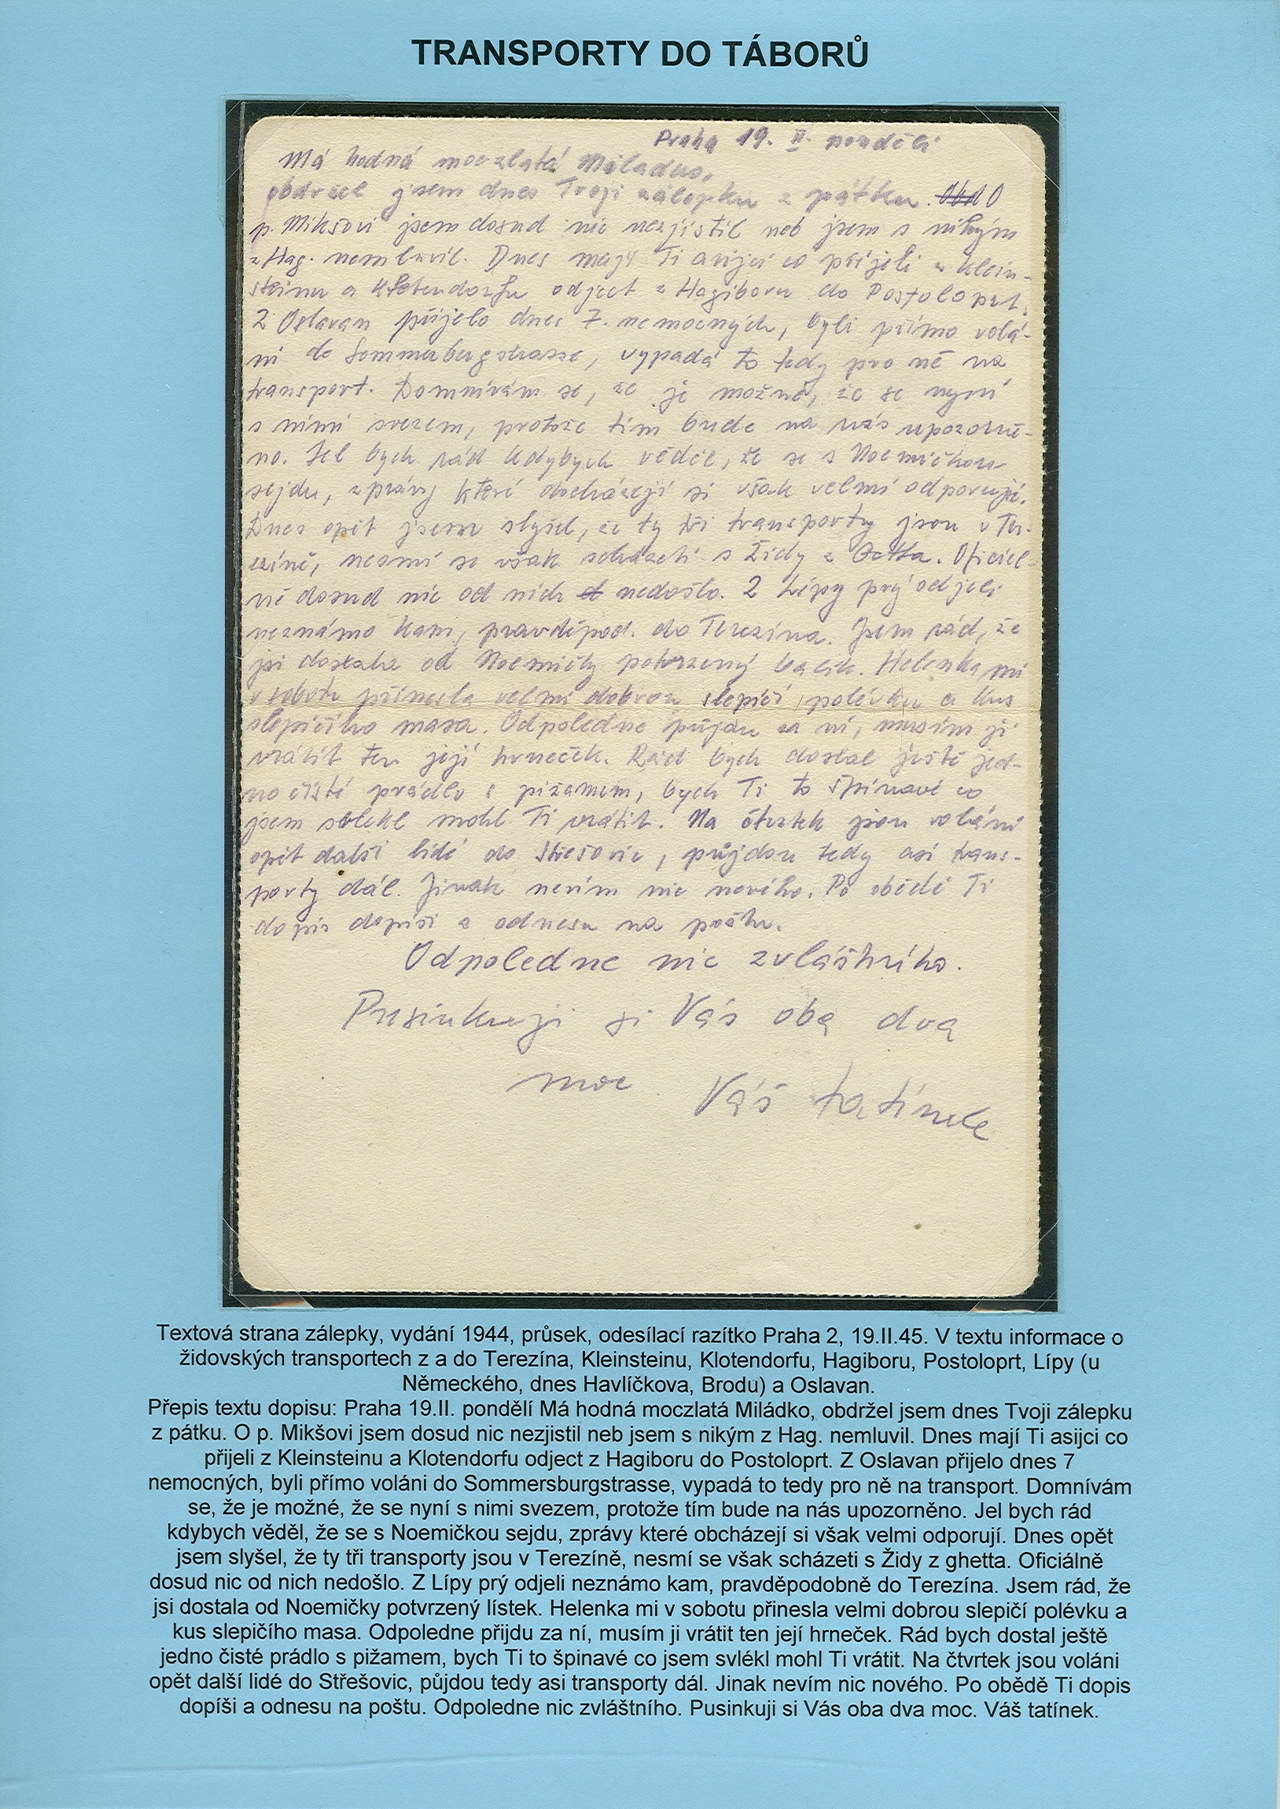 TRANSPORTY DO TÁBORŮ
Praha 19. II. pondělí
Má hodná moczlatá Miládko,
obdržel jsem dnes Tvoji zálepku z pátku. O
p. Mikšovi jsem dosud nic nezjistil neb jsem s nikým
z Hag. nemluvil. Dnes mají Ti asijci co přijeli z Klein-
steinu a Kletendorfu odject z Hagiboru do Postoloprt.
Z Oslavan přijelo dnes 7. nemocných, byli přímo volá-
ni do Sommerbergstrasse, vypadá to tedy pro ně na
transport. Domnívám se, že je možné, že se nyní
s nimi svezem, protože tím bude na nás upozorně-
no. Jel bych rád kdybych věděl, že se s Noemičkou
sejdu, zprávy které docházejí si však velmi odporují.
Dnes opět jsem slyšel, že ty tři transporty jsou v Te-
rezíně, nesmí se však scházeti s Židy z Getta. Oficiel-
ně dosud nic od nich nedošlo. Z Lípy prý odjeli
neznámo kam, pravděpod. do Terezína. Jsem rád, že
jsi dostala od Noemičky potvrzený. Helenka mi
v sobotu přinesla velmi dobrou slepičí polévku a kus
slepičího masa. Odpoledne půjdu za ní, musím ji
vrátit ten její hrneček. Rád bych dostal ještě jed-
no čisté prádlo s pižamem, bych Ti to špinavé co
jsem svlékl mohl Ti vrátit. Na čtvrtek jsou voláni
opět další lidé do Střešovic, půjdou tedy asi trans-
porty dál. Jinak nevím nic nového. Po obědě Ti
dopis dopíši a odnesu na poštu.
Odpoledne nic zvláštního.
Pusinkuji si Vás oba dva
moc Váš tatínek
Textová strana zálepky, vydání 1944, průsek, odesílací razítko Praha 2, 19.II.45. V textu informace o
židovských transportech z a do Terezína, Kleinsteinu, Klotendorfu, Hagiboru, Postoloprt, Lípy (u
Německého, dnes Havlíčkova, Brodu) a Oslavan.
Přepis textu dopisu: Praha 19.II. pondělí Má hodná moczlatá Miládko, obdržel jsem dnes Tvoji zálepku
z pátku. O p. Mikšovi jsem dosud nic nezjistil neb jsem s nikým z Hag. nemluvil. Dnes mají Ti asijci co
přijeli z Kleinsteinu a Klotendorfu odject z Hagiboru do Postoloprt. Z Oslavan přijelo dnes 7
nemocných, byli přímo voláni do Sommersburgstrasse, vypadá to tedy pro ně na transport. Domnívám
se, že je možné, že se nyní s nimi svezem, protože tím bude na nás upozorněno. Jel bych rád
kdybych věděl, že se s Noemičkou sejdu, zprávy které obcházejí si však velmi odporují. Dnes opět
jsem slyšel, že ty tři transporty jsou v Terezíně, nesmí se však scházeti s Židy z ghetta. Oficiálně
dosud nic od nich nedošlo. Z Lípy prý odjeli neznámo kam, pravděpodobně do Terezína. Jsem rád, že
jsi dostala od Noemičky potvrzený lístek. Helenka mi v sobotu přinesla velmi dobrou slepičí polévku a
kus slepičího masa. Odpoledne přijdu za ní, musím ji vrátit ten její hrneček. Rád bych dostal ještě
jedno čisté prádlo s pižamem, bych Ti to špinavé co jsem svlékl mohl Ti vrátit. Na čtvrtek jsou voláni
opět další lidé do Střešovic, půjdou tedy asi transporty dál. Jinak nevím nic nového. Po obědě Ti dopis
dopíši a odnesu na poštu. Odpoledne nic zvláštního. Pusinkuji si Vás oba dva moc. Váš tatínek.